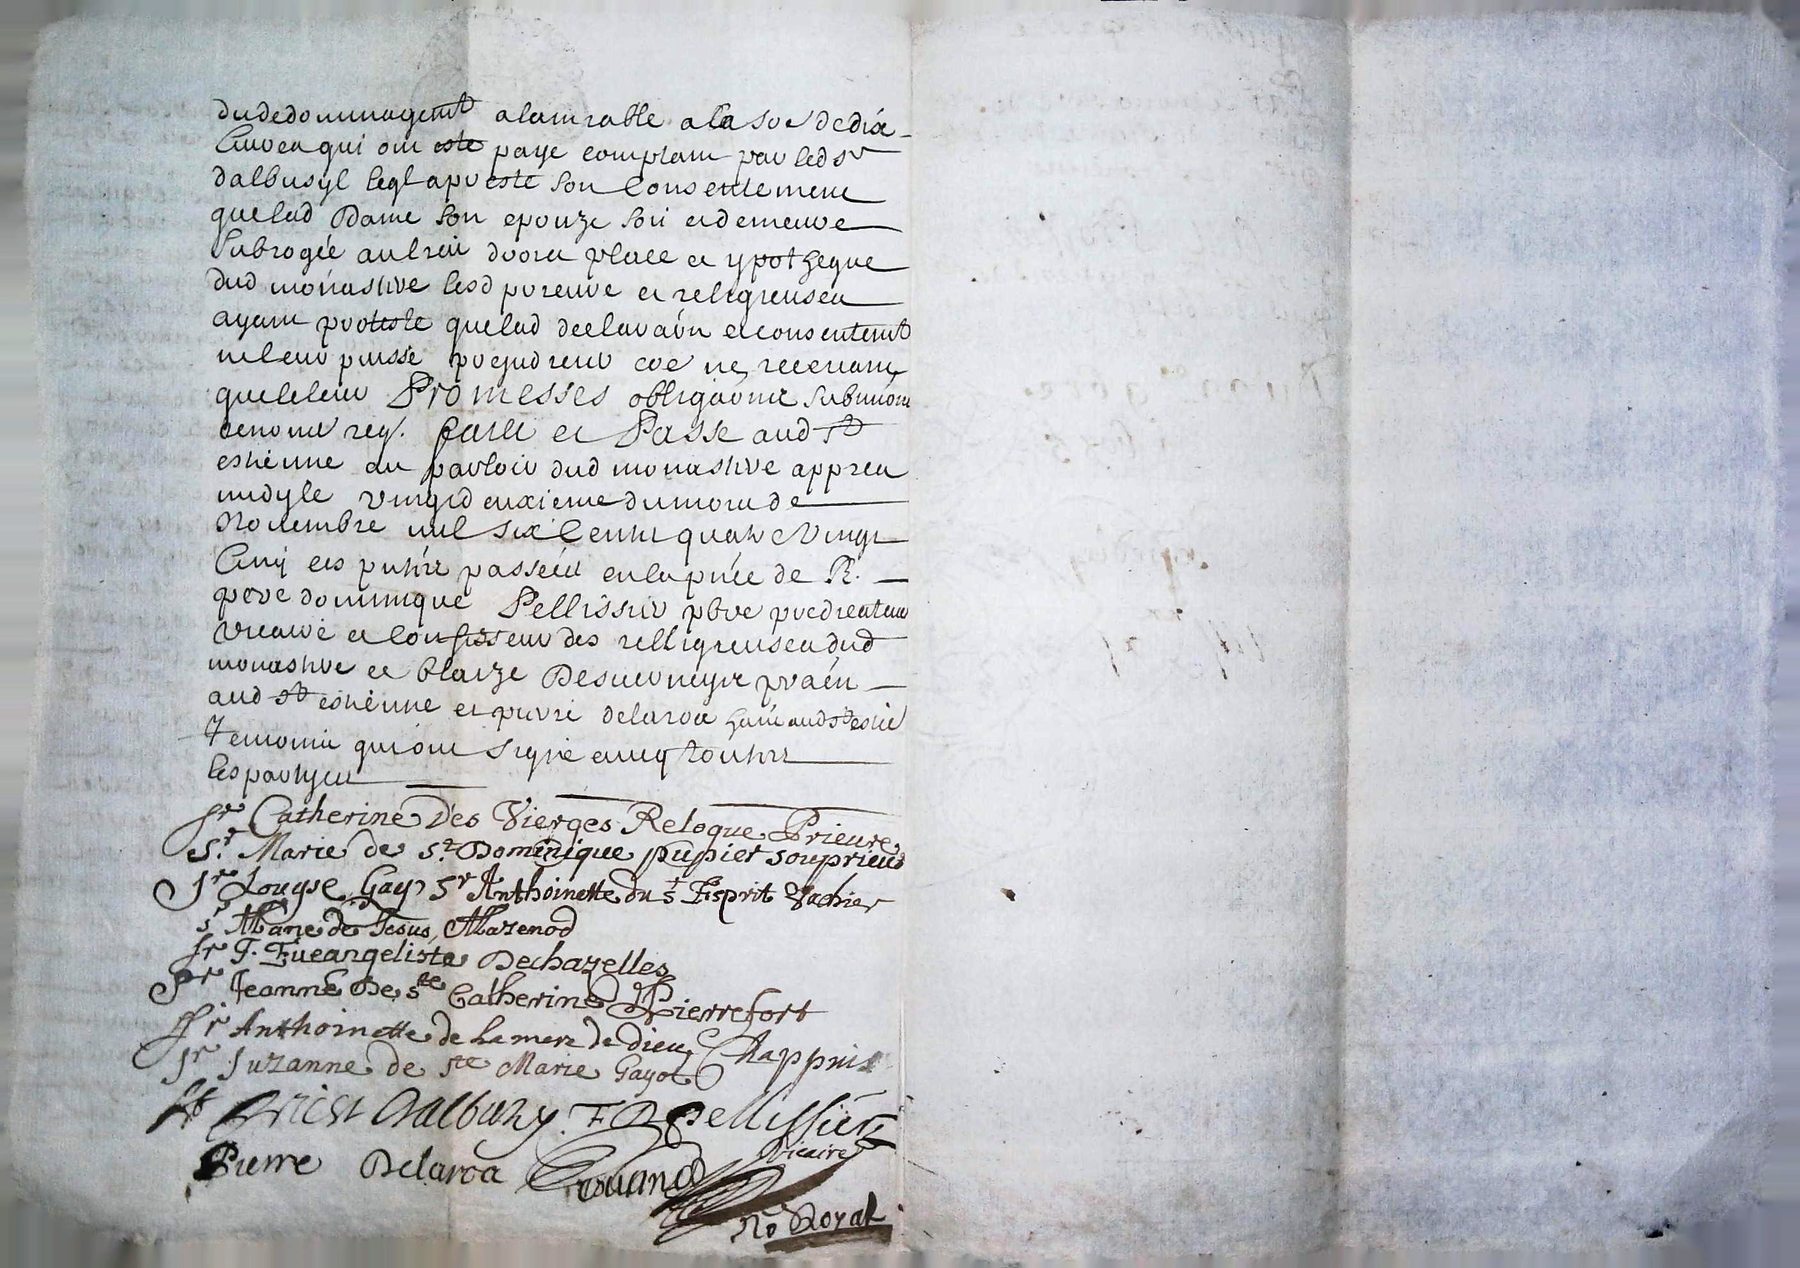 dudedommagemt alamiable a la so͞e dedix
livres qui ont este paye comptant par led sr
dalbusy leql apreste son consentement
quelad Dame son epouze soit et demeure
subrogée au lieu droict place et ypotheque
dud monastere lesd prieure et religieuses
ayant proteste quelad declaraõn et consentemt
ne leur puisse prejudicier co͞e ne recevant
que le leur Promesses obligaõns submiõns
renons req. faict et Passe aud st
estienne au parloir dud monastere appres
midy le vingt deuxieme du mois de
Novembre mil six Cents quatre Vingt
Cinq es pntes passées en la pnce de R.
pere dominique Pellissier pbre predicateur
vicaire et Confesseur des relligieuses dud
monastere et blaize Desuerneys pratn
aud st estienne et pierre delaroa hant aud st estie
Temoins qui ont signé avecq touttes
les partyes
sr Catherine Des Vierges Relogue Prieure
Sr Marie de St Dominique pupier souprieure
Sr Louyse Gay Sr Anthoinette du St Esprit Vachier
sr Marie de Jesus Mazenod
Sr F. Eueangeliste Dechazelles
Sr Jeanne De ste Catherine Pierrefort
Sr Anthoinette de La mere de dieu Chappuis
Sr Suzanne de ste Marie Gayot
Dalbuzy F D Pellissier
Vicaire
Pierre Delaroa
No Royal